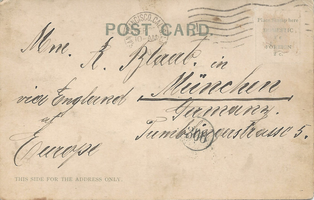 POST CARD
Mme. R. Blaab. in
München
via England
Germany.
of
Europe
THIS SIDE FOR THE ADDRESS ONLY.